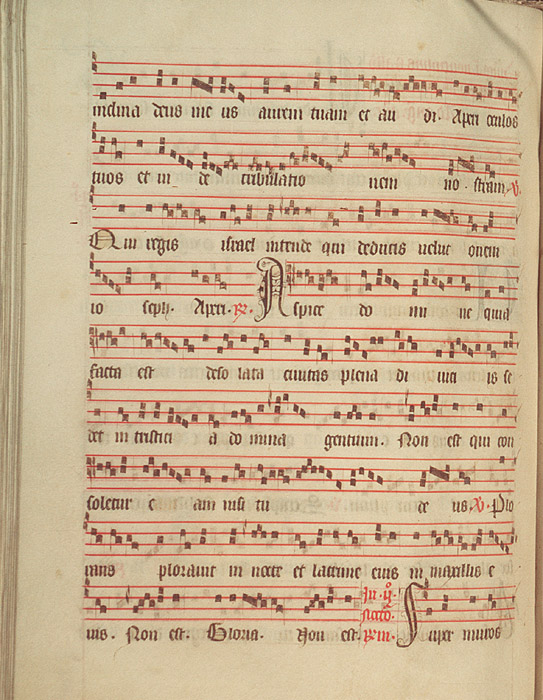 inclina deus me us aurem tuam et au di. Aperi oculos
tuos et vi de tribulatio nem no stram. V.
Qui regis israel intende qui deducis velut ovem
io seph. Aperi. R. Aspice do mi ne quia
facta est deso lata civitas plena di vici is se
det in tristici a do mina gentium. Non est qui con
soletur e am nisi tu de us. V. Plo
rans ploravit in nocte et lacrime eius in maxillis e
ius. Non est. Gloria. Non est. Super muros